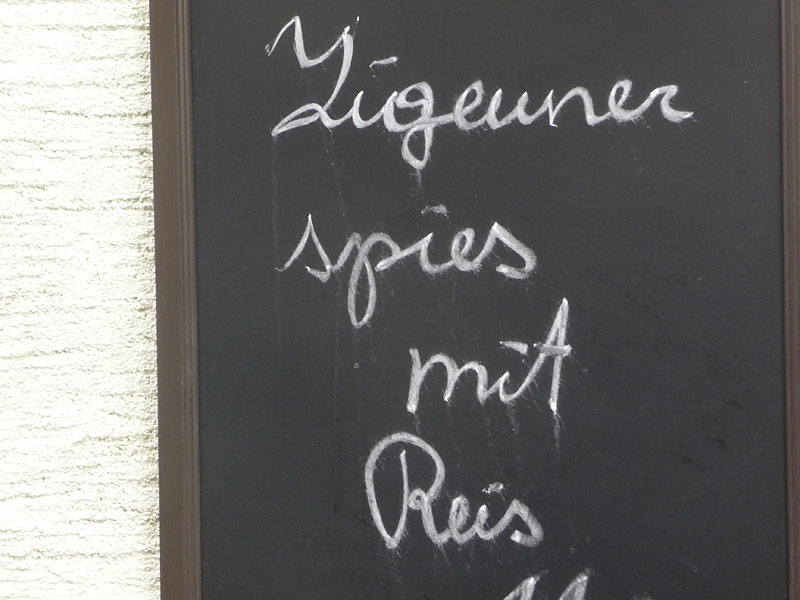 Zigeuner
spies
mit
Reis